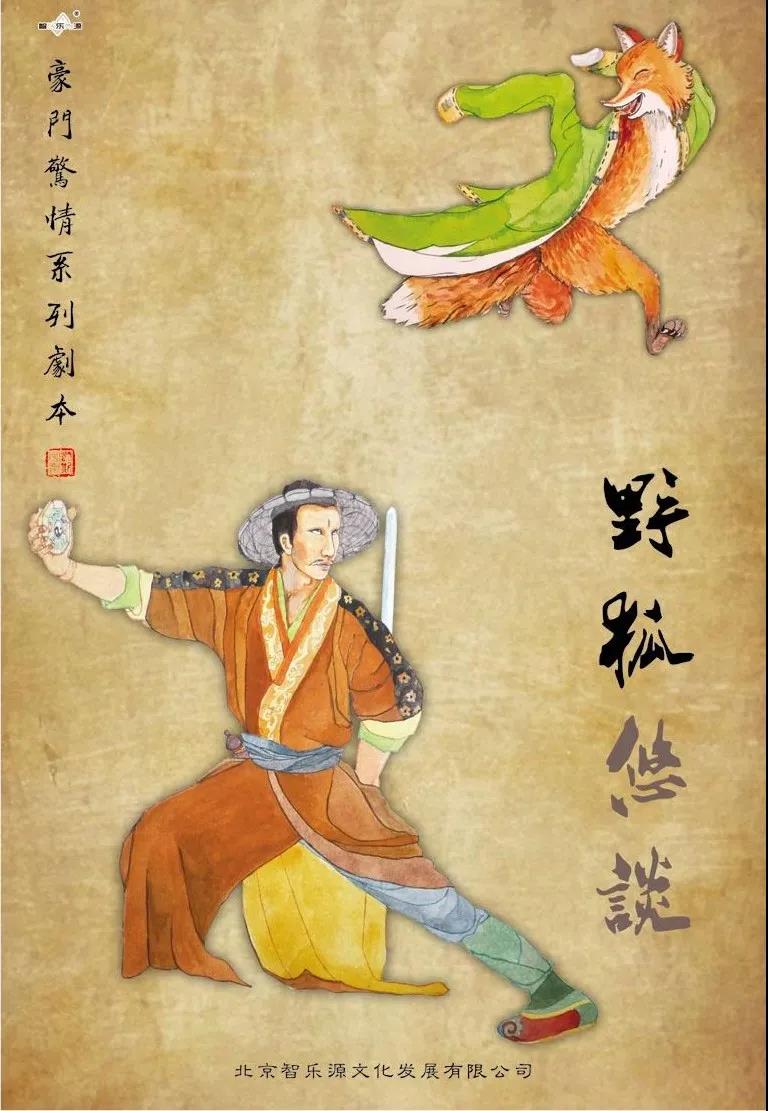 智乐源
豪門驚情系列劇本
野狐悠談
北京智乐源文化发展有限公司